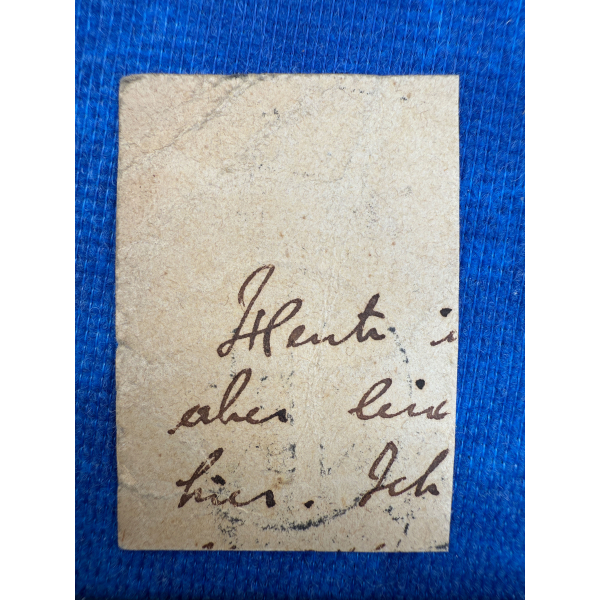 Heute i
aber leid
hier. Ich